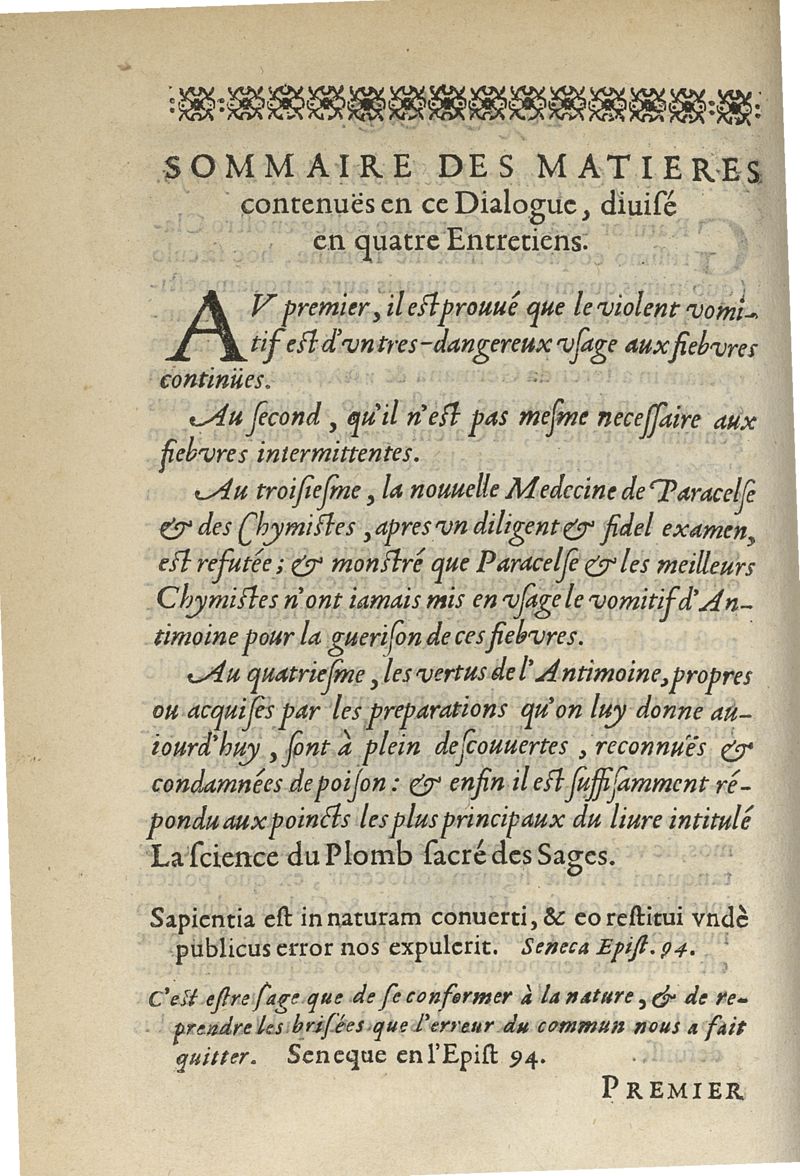 SOMMAIRE DES MATIERES
contenuës en ce Dialogue, diuiſé
en quatre Entretiens.
AV premier, il eſt prouué que le violent vomi-
tif eſt d'vn tres-dangereux vſage aux fiebvres
continües.
Au ſecond, qu'il n'eſt pas meſme neceſſaire aux
fiebvres intermittentes.
Au troiſieſme, la nouuelle Medecine de Paracelſe
& des Chymiſtes, apres vn diligent & fidel examen,
eſt refutée; & monſtré que Paracelſe & les meilleurs
Chymiſtes n'ont iamais mis en vſage le vomitif d'An-
timoine pour la gueriſon de ces fiebvres.
Au quatrieſme, les vertus de l'Antimoine, propres
ou acquiſes par les preparations qu'on luy donne au-
iourd'huy, ſont à plein deſcouuertes, reconnuës &
condamnées de poiſon: & enfin il eſt ſuffiſamment ré-
pondu aux poincts les plus principaux du liure intitulé
La ſcience du Plomb ſacré des Sages.
Sapientia eſt in naturam conuerti, & eo reſtitui vndè
publicus error nos expulerit. Seneca Epiſt. 94.
C'eſt eſtre ſage que de ſe conformer à la nature, & de re-
prendre les briſées que l'erreur du commun nous a fait
quitter. Seneque en l'Epiſt 94.
PREMIER